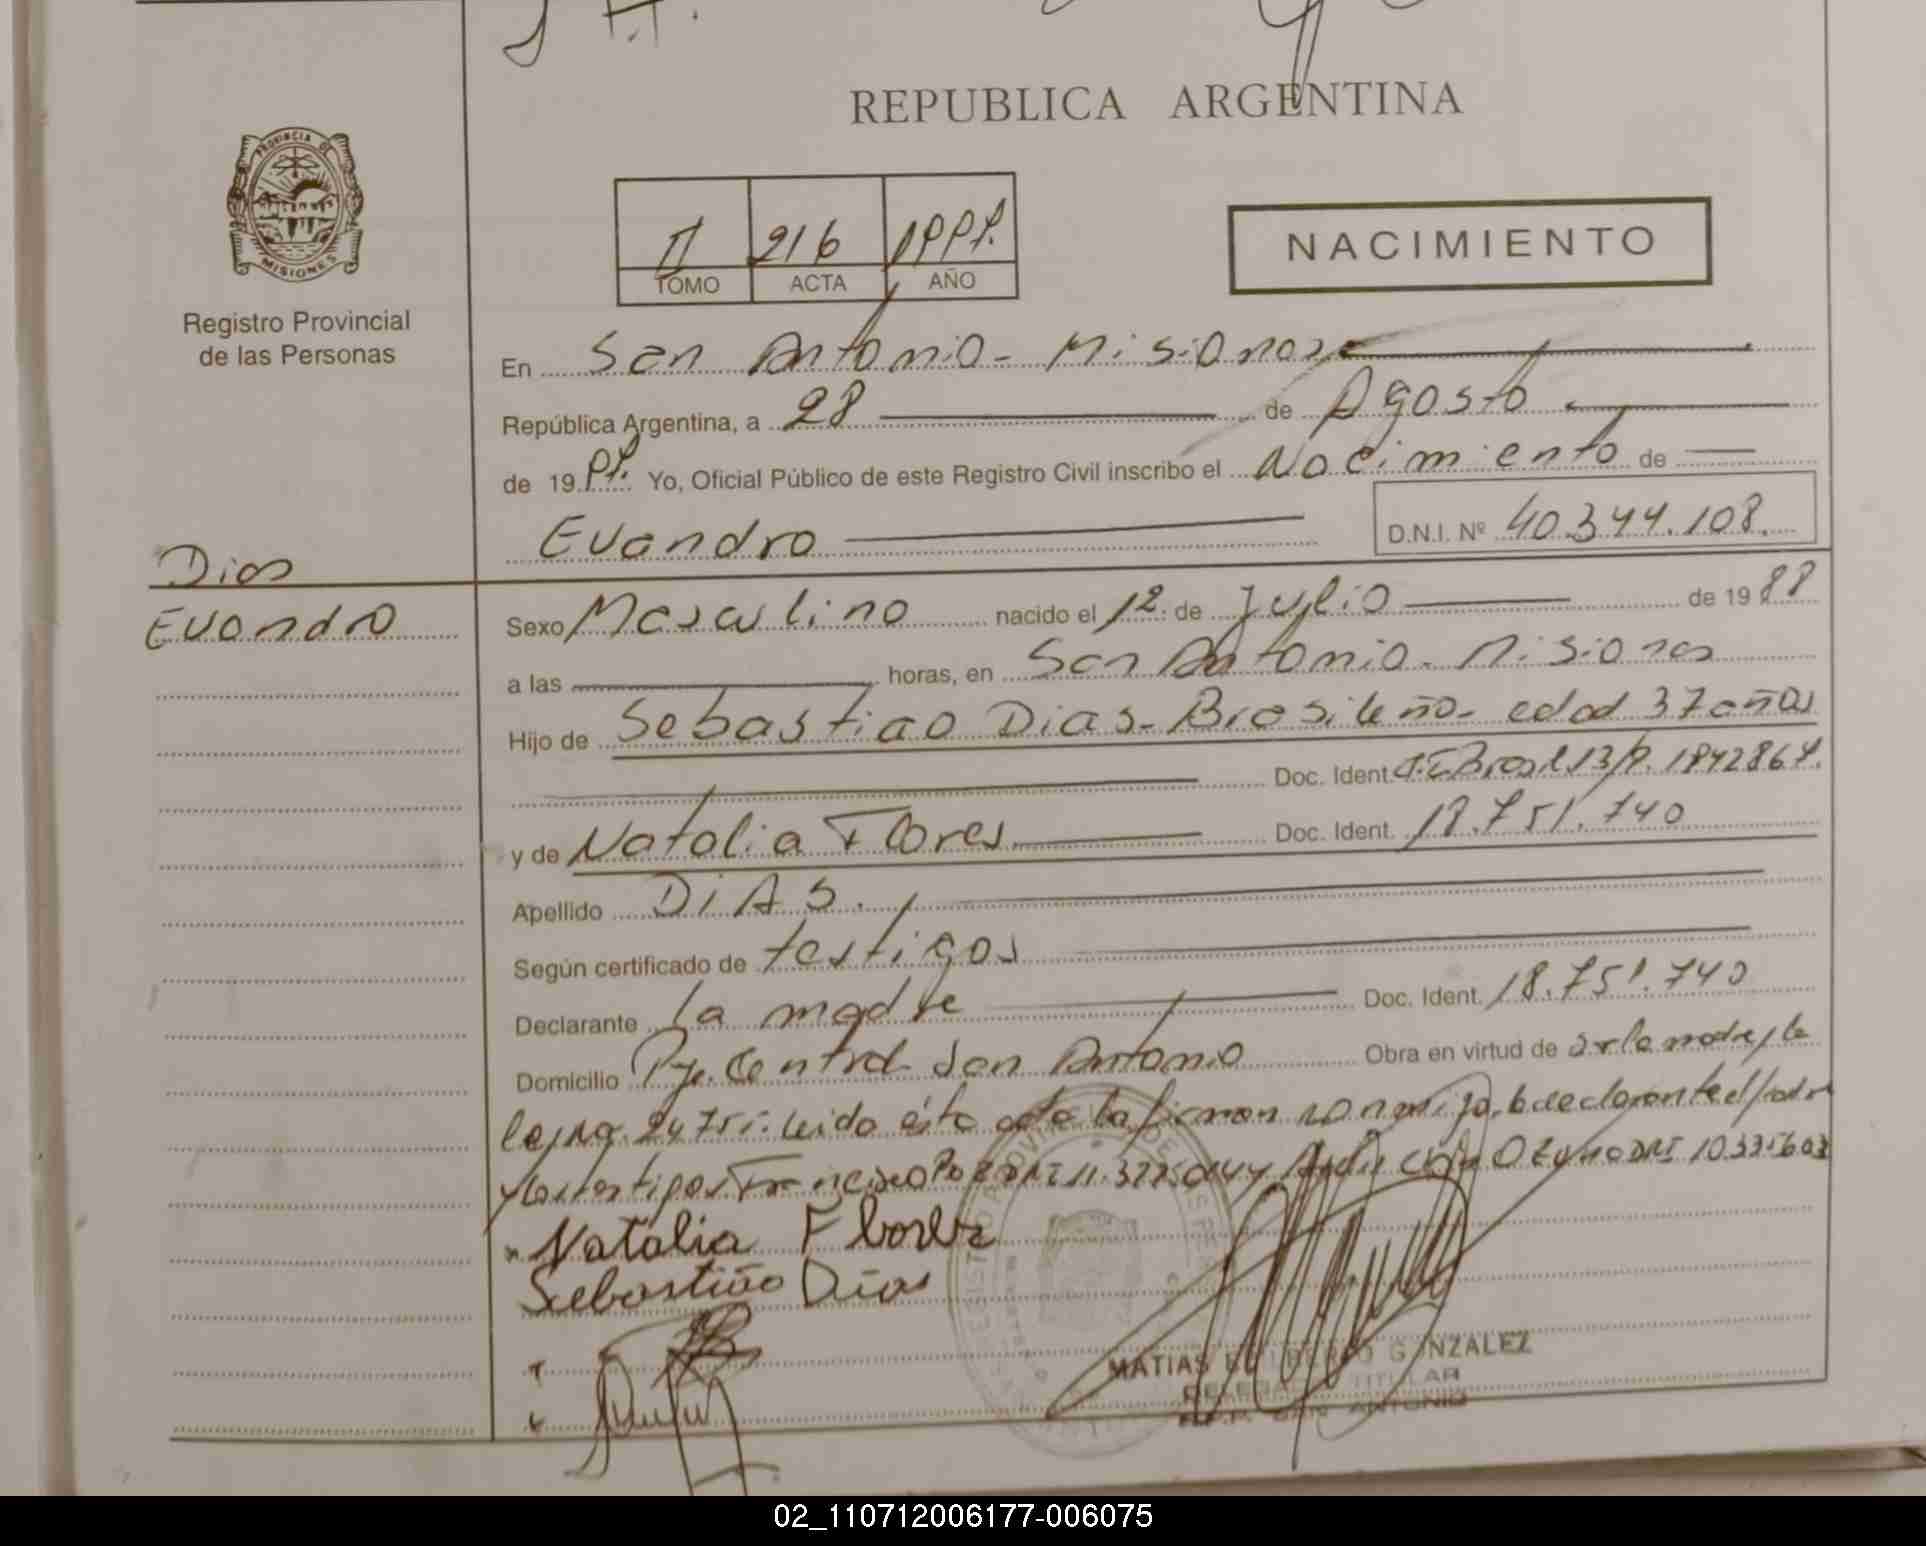 REPUBLICA ARGENTINA
PROVINCIA DE
MISIONES
Registro Provincial
de las Personas
II 216
TOMO ACTA AÑO
NACIMIENTO
En San Antonio - Misiones
República Argentina, a 28 de Agosto
de 19 Yo, Oficial Público de este Registro Civil inscribo el Nacimiento de
Evandro D.N.I. Nº 40.344.108.
Dias
Evandro
Sexo Masculino nacido el 12 de Julio de 1988
a las horas, en San Antonio - Misiones
Hijo de Sebastiao Dias - Brasileño - edad 37 años
Doc. Ident.
y de Natalia Flores Doc. Ident. 18.751.740
Apellido DiAS.
Según certificado de testigos
Declarante La madre Doc. Ident. 18.751.740
Domicilio Pje. Central San Antonio Obra en virtud de
Leido la firman
y los testigos Francisco
Natalia Flores
Sebastião Dias
MATIAS GONZALEZ
TITULAR
SAN ANTONIO
02_110712006177-006075